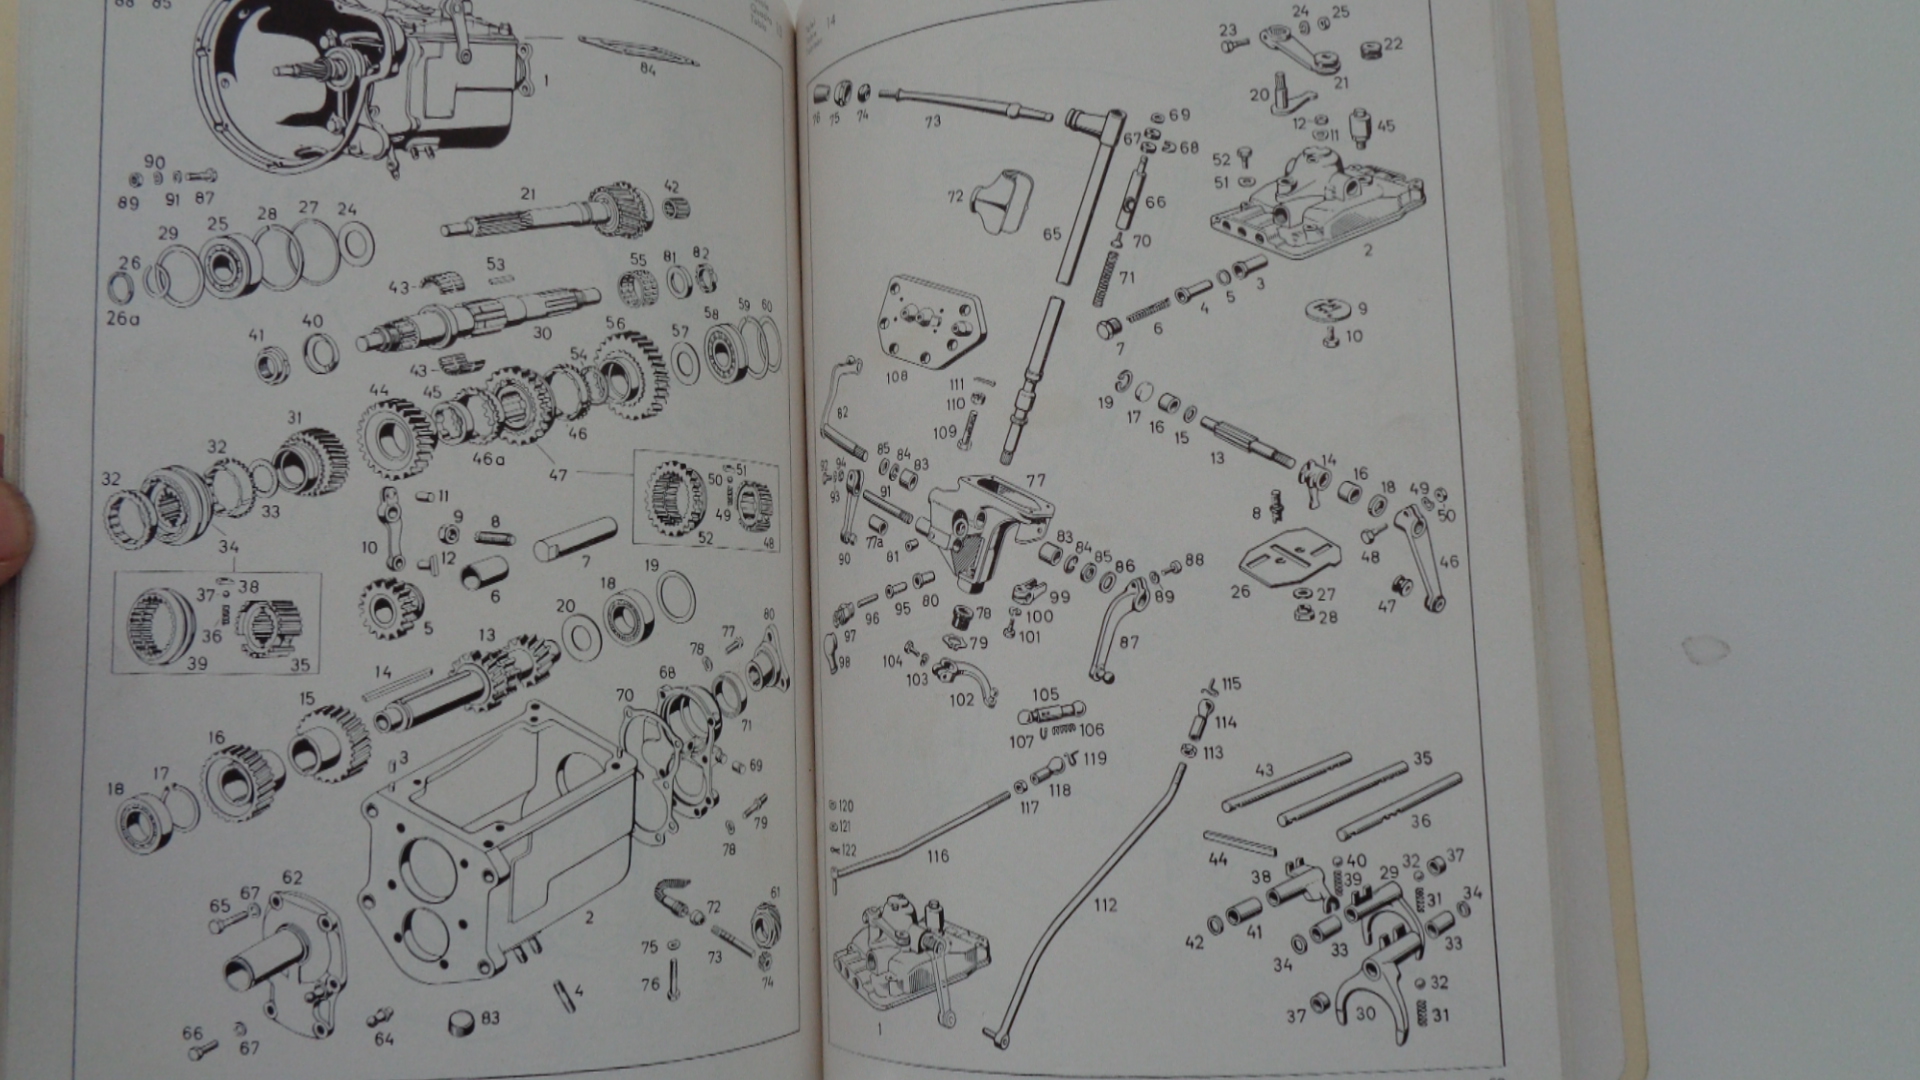 88 85
1
84
90
89 91 87
21
42
29
25
28
27
24
26
26a
43
53
55
81
82
41
40
30
43
56
57
58
59
60
54
45
44
46
46a
47
31
32
32
33
34
11
10
9
8
12
7
6
5
50
51
49
52
48
37
38
36
39
35
19
18
20
13
14
15
16
17
18
77
78
80
68
70
71
69
79
78
3
2
62
67
65
66
67
64
83
4
72
61
75
76
73
74
13
14
76
75
74
73
69
67
68
72
66
65
70
71
23
24
25
22
21
20
12
11
45
52
51
2
3
5
4
6
7
9
10
108
111
110
109
82
19
17
16
15
13
14
16
18
49
50
48
46
47
8
26
27
28
92
94
93
85
84
83
91
90
77a
81
77
83
84
85
86
88
89
87
80
95
96
97
98
78
79
99
100
101
104
103
102
105
106
107
115
114
113
119
118
117
116
120
121
122
112
1
43
35
36
44
38
40
39
29
32
37
31
34
33
41
42
33
34
32
31
30
37